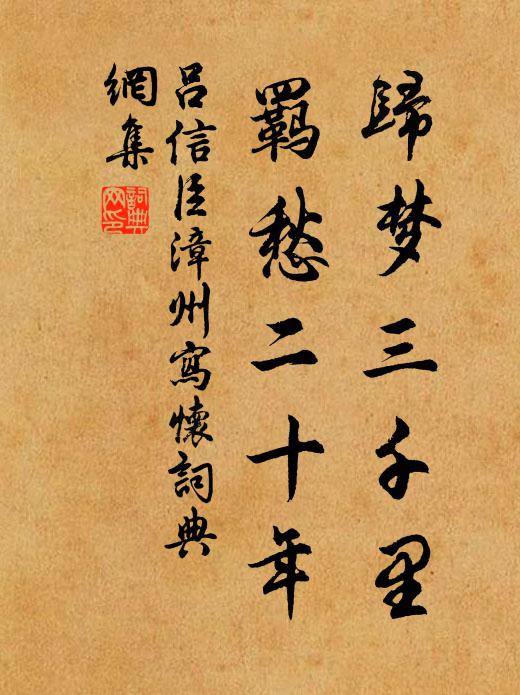 歸梦三千里
羈愁二十年
呂信臣漳州寫懷詞典
網集
詞典
网印